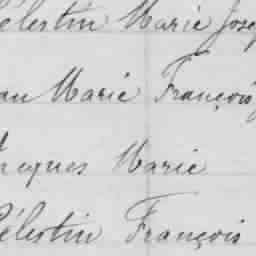 Célestin Marie Jose
an Marie François
acques Marie
Célestin François